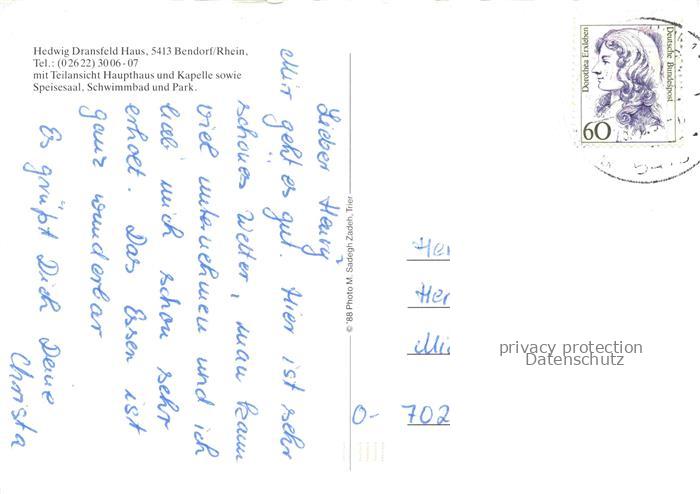 Hedwig Dransfeld Haus, 5413 Bendorf/Rhein,
Tel.: (02622) 3006-07
mit Teilansicht Haupthaus und Kapelle sowie
Speisesaal, Schwimmbad und Park.
Lieber Henry
Mir geht es gut. Hier ist sehr
schönes Wetter, man kann
viel unternehmen und ich
hab mich schon sehr
erholt. Das Essen ist
ganz wunderbar
Es grüßt Dich Deine
Christa
© '88 Photo M. Sadegh Zadeh, Trier
Dorothea Erxleben
Deutsche Bundespost
60
Her
Her
O- 702
privacy protection
Datenschutz